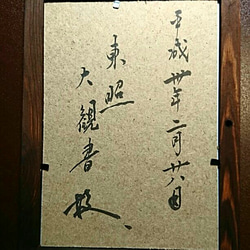 平成卅年二月廿八日
東照
大観書